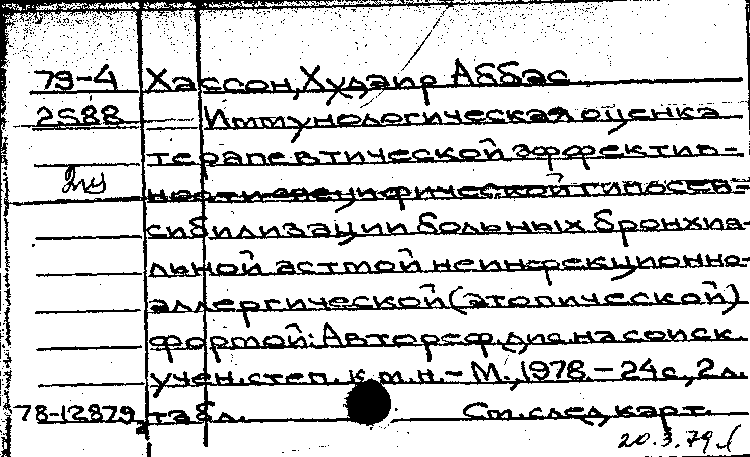 79-4 Хассон, Худаир Аббас
2688 Иммунологическая оценка
терапевтической эффектив-
ности специфической гипосен-
сибилизации больных бронхиа-
льной астмой неинфекционно-
аллергической (атопической)
формой: Автореф. дис. на соиск.
учен. степ. к.м.н. - М., 1978. - 24 с, 2 л.
78-12879 табл. См. след. карт.
20.3.79